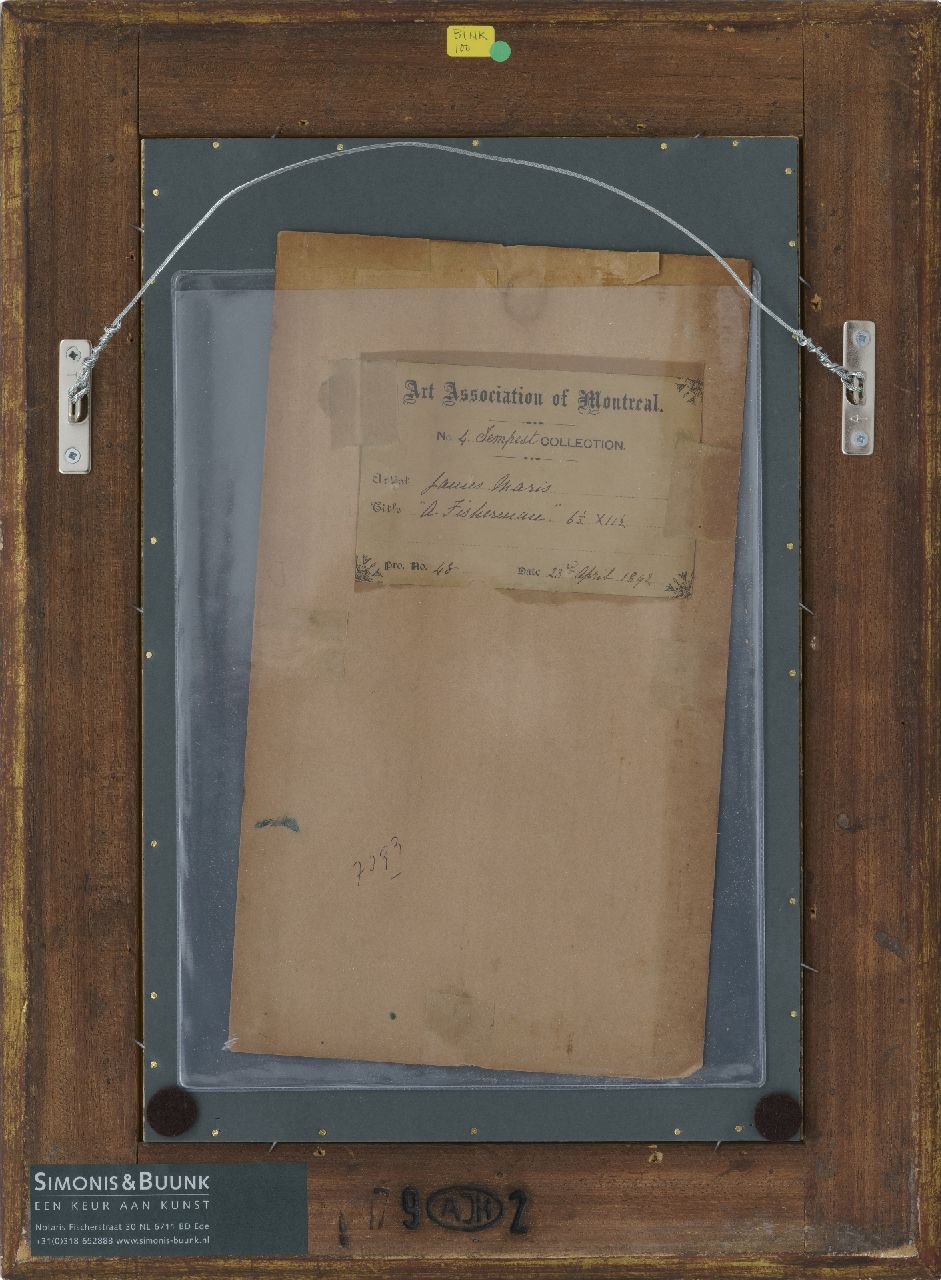 BINK
100
Art Association of Montreal.
No. 4. Tempest COLLECTION.
Artist James Maris
Title "A. Fisherman" 6½ X 11½
Pro. No. 48 Date 23rd April 1892
7393
SIMONIS & BUUNK
EEN KEUR AAN KUNST
Notaris Fischerstraat 30 NL 6711 BD Ede
+31(0)318 652888 www.simonis-buunk.nl
9 AJH 2